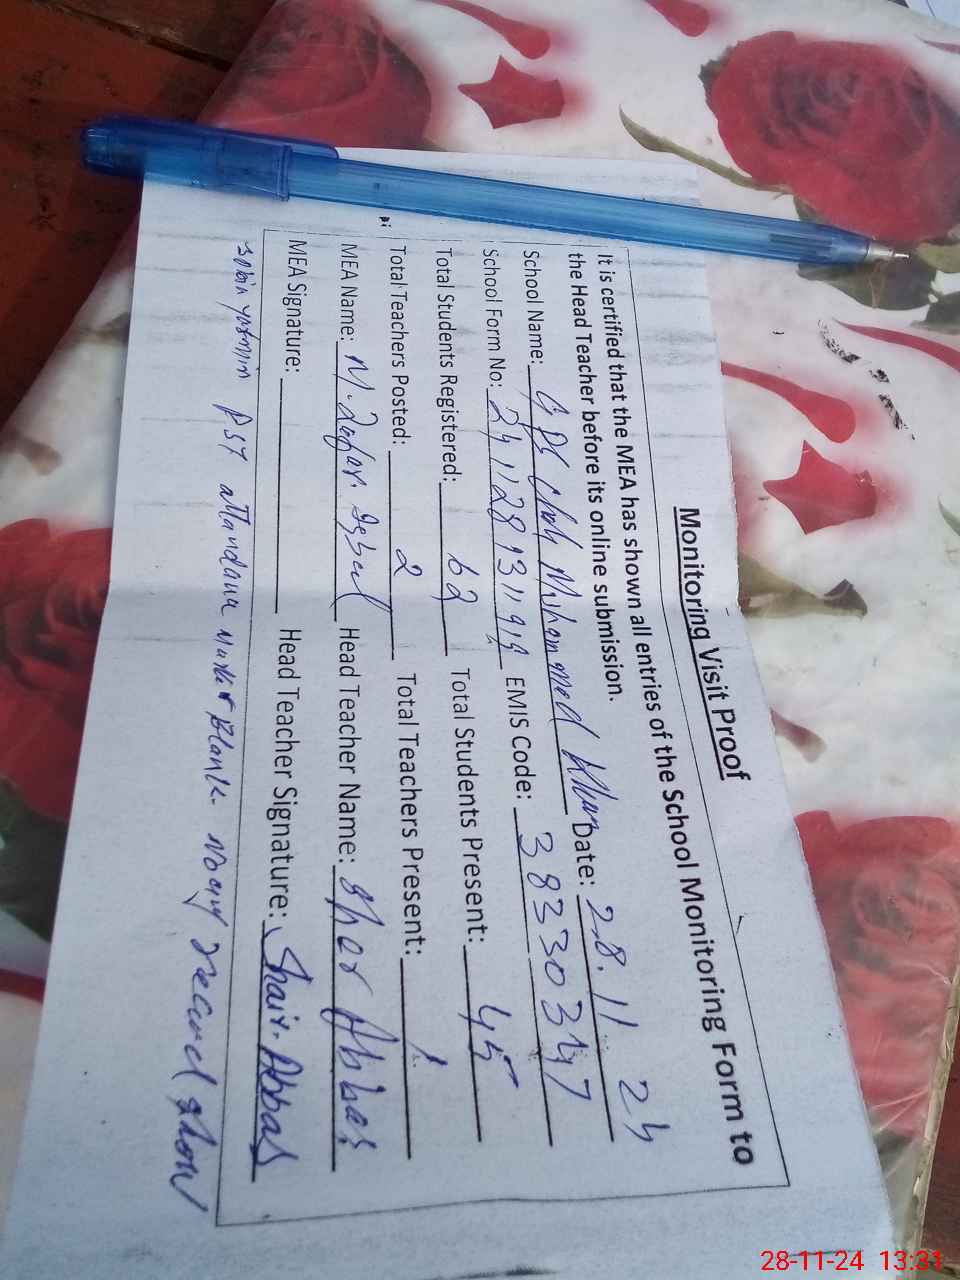 Monitoring Visit Proof
It is certified that the MEA has shown all entries of the School Monitoring Form to
the Head Teacher before its online submission.
School Name: G PS Chah Muhammad Khan Date: 28.11.24
School Form No: EMIS Code: 38330347
Total Students Registered: 62 Total Students Present: 45
Total Teachers Posted: 2 Total Teachers Present: 1
MEA Name: M. Zafar Iqbal Head Teacher Name: Sher Abbas
MEA Signature: Head Teacher Signature: Shair. Abbas
PST Blank. record show
28-11-24 13:31